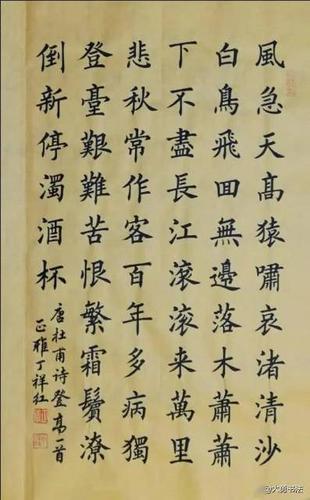 風急天髙猿嘯哀渚清沙
白鳥飛囬無邊落木蕭蕭
下不盡長江滾滾来萬里
悲秋常作客百年多病獨
登臺艱難苦恨繁霜鬢潦
倒新停濁酒杯
唐杜甫诗登高一首
正雅丁祥红